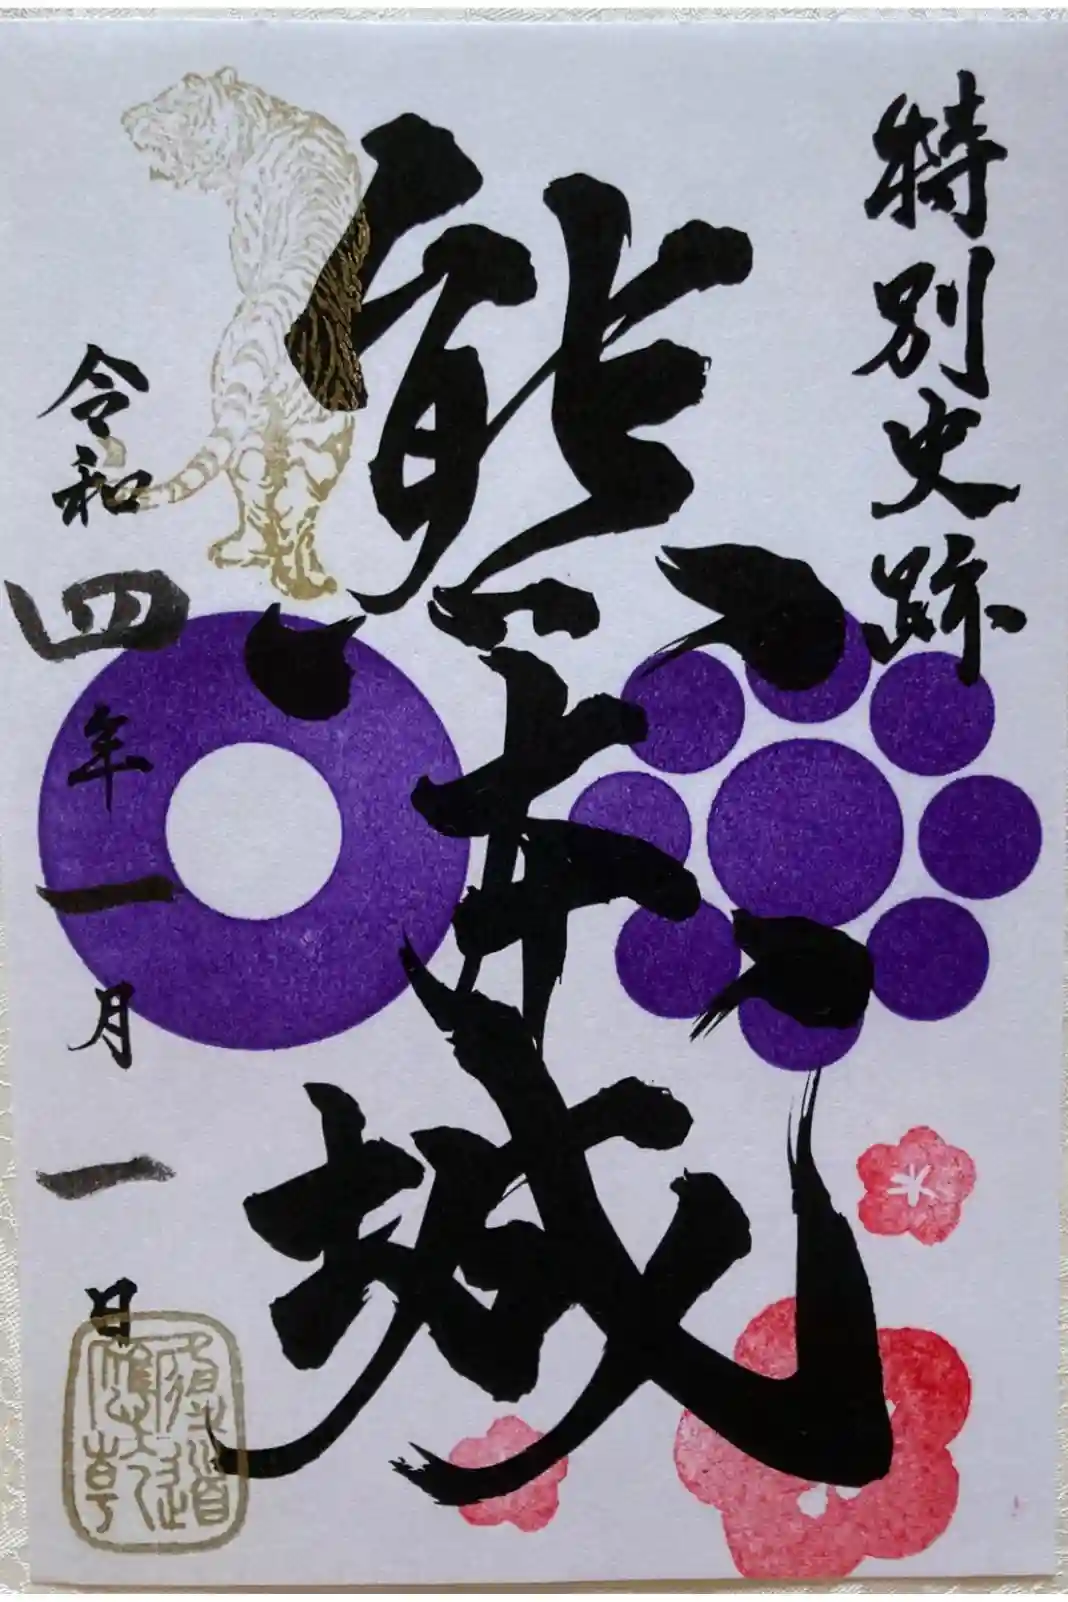 特別史跡
熊本城
令和四年一月一日